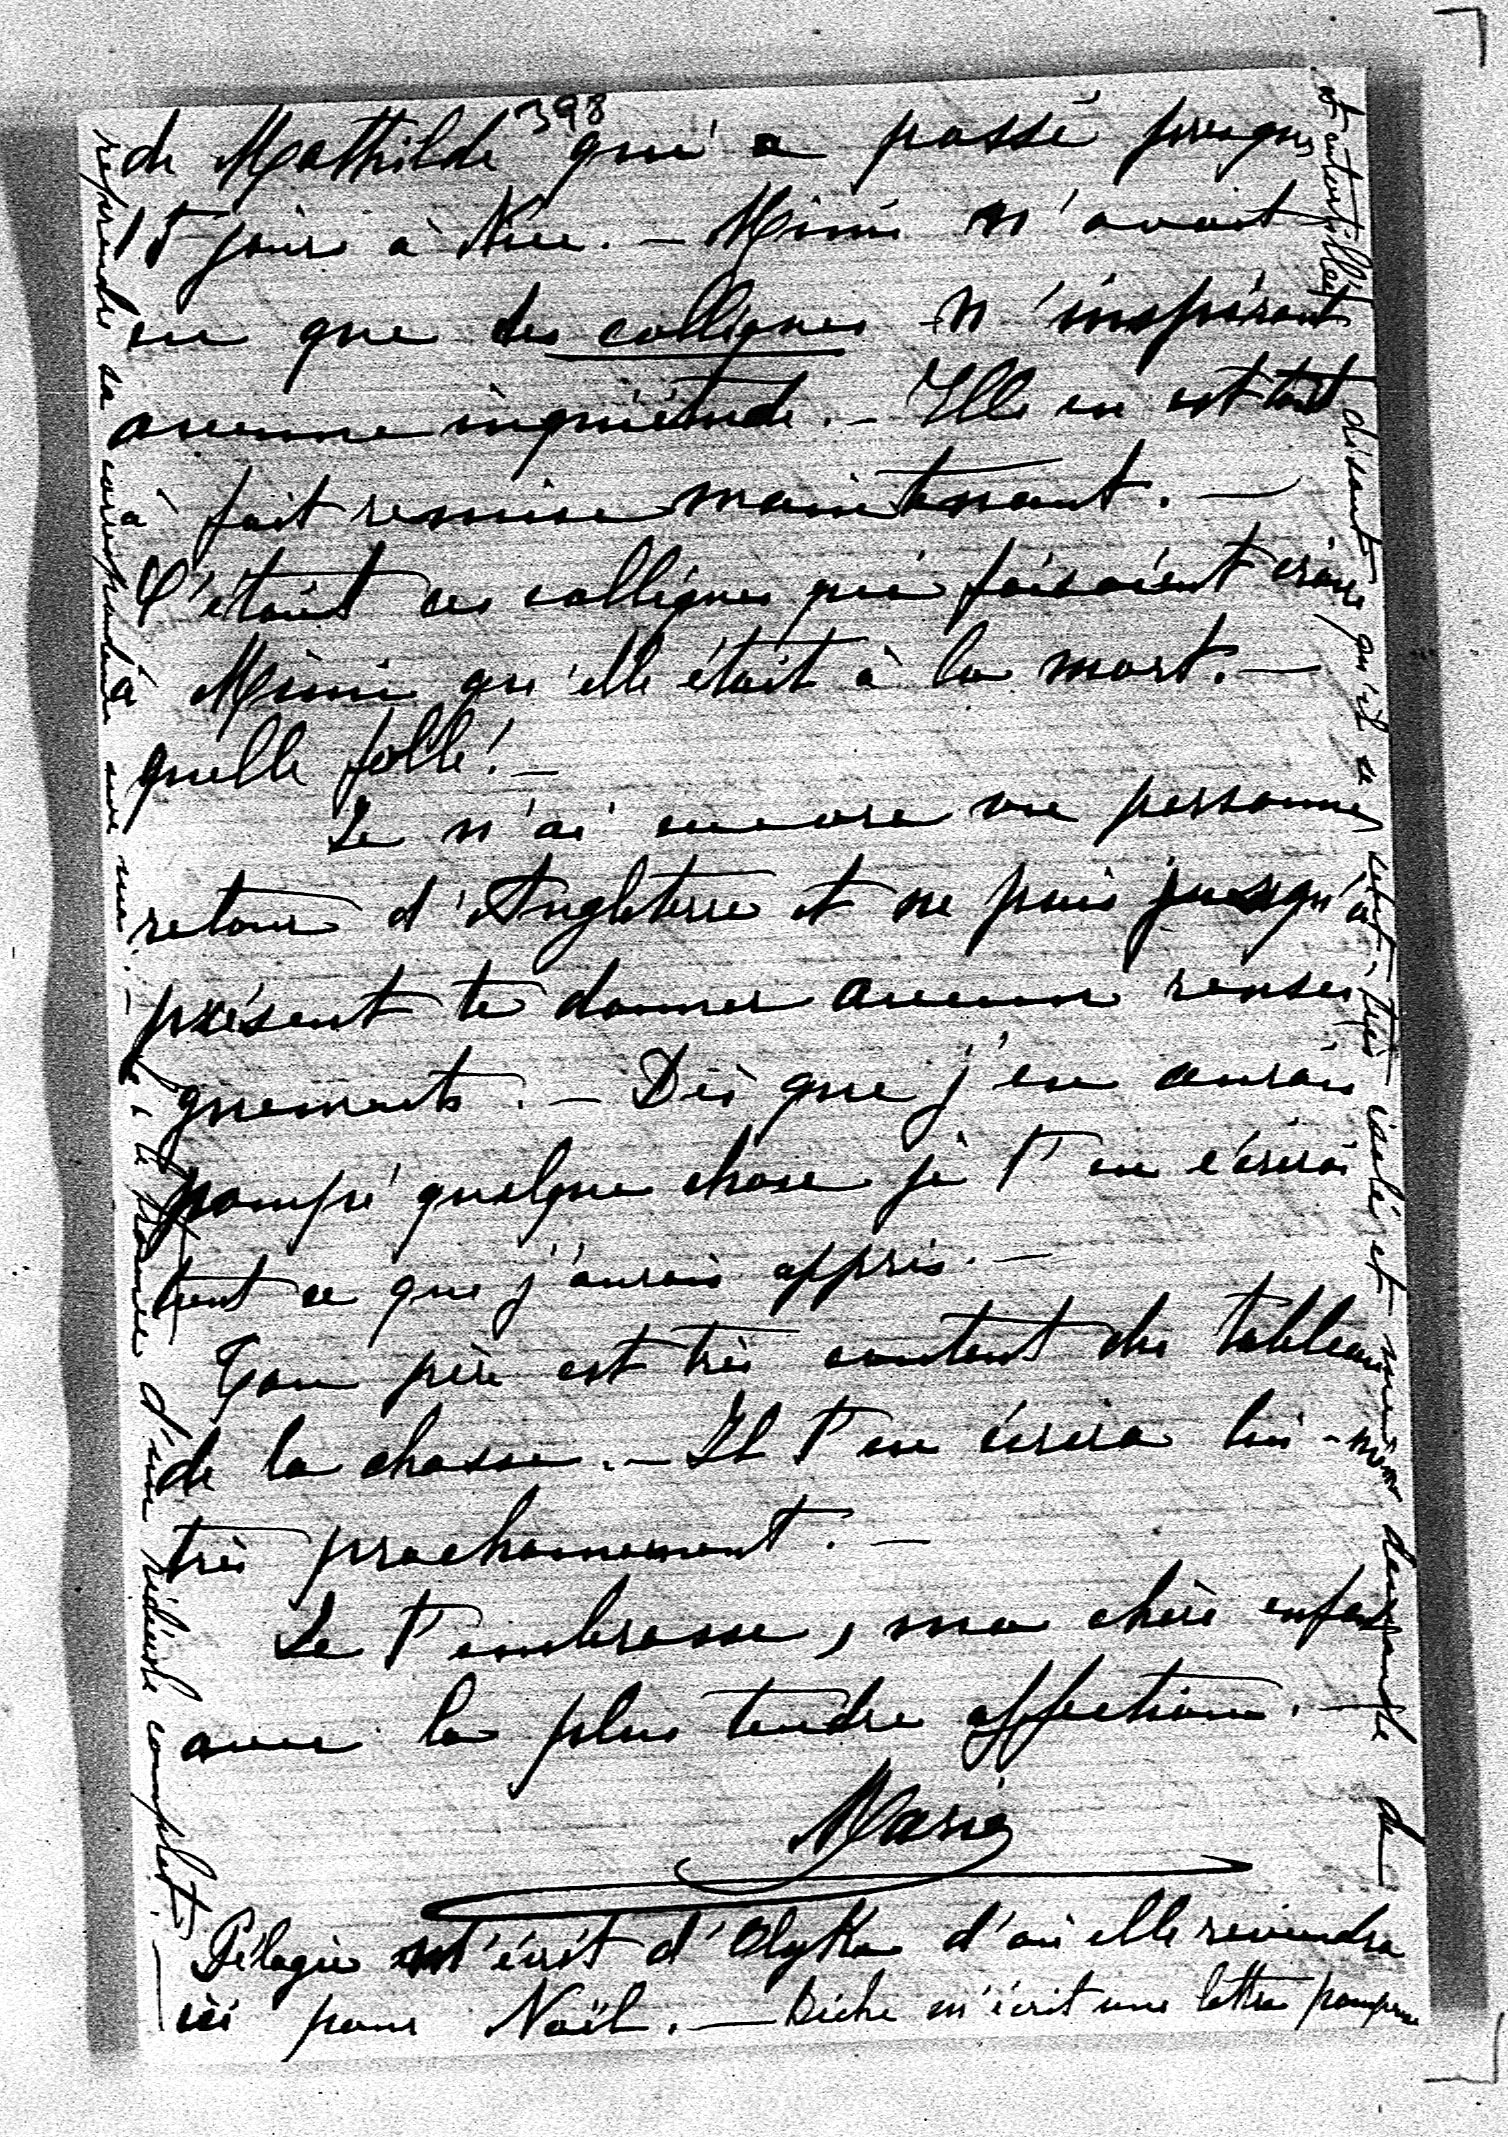 398
de Mathilde qui a passé presque
15 jours à Nice. – Mimi n'avait
eu que des colliques n'inspirant
aucune inquiétude. – Elle en est tout
à fait remise maintenant. –
C'était ces colliques qui faisaient croire
à Mimi qu'elle était à la mort. –
quelle folle! –
Je n'ai encore vu personne
retour d'Angleterre et ne puis jusqu'à
présent te donner aucun rensei
gnements. – Dès que j'en aurais
pompé quelque chose je t'en écrirai
tout ce que j'aurais appris. –
Ton père est très content du tableau
de la chasse. – Il t'en écrira lui-même
très prochainement. –
Je t'embrasse, ma chère enfant
avec la plus tendre affection. –
Marie
Pélagie m'écrit d'Olyka d'où elle reviendra
ici pour Noël. – Biche m'écrit une lettre pompeuse
et entortillée disant qu'il se sent très isolé et me demande de
reprendre sa correspondance avec moi. – d'un ridicule complet. –